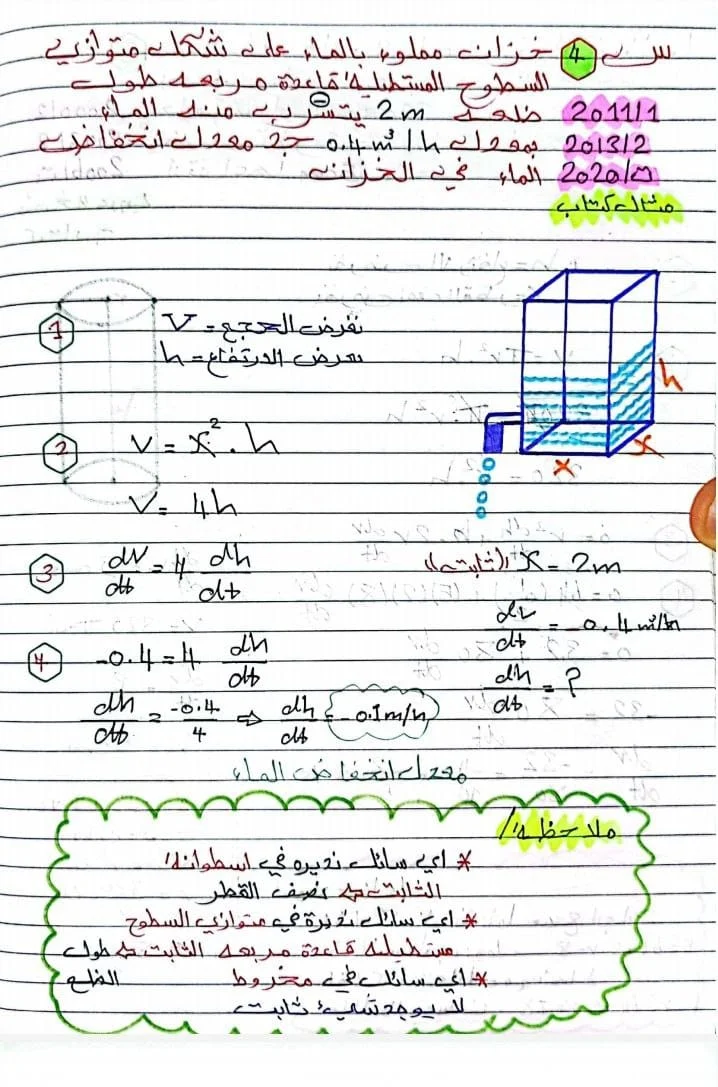 س 4 خزان مملوء بالماء على شكل متوازي
السطوح المستطيلة قاعدة مربعه طول
2011/1 ضلعه 2m يتسرب منه الماء
2013/2 بمعدل 0.4 m³/h جد معدل انخفاض
2020/ن الماء في الخزان
مثال كتاب
1 نفرض الحجم = V
نفرض الارتفاع = h
h
x
x
2 V = x² . h
V = 4h
x = 2m (ثابت)
3 dv/dt = 4 dh/dt
dv/dt = -0.4 m³/h
4 -0.4 = 4 dh/dt
dh/dt = ?
dh/dt = -0.4/4 ⇒ dh/dt = -0.1 m/h
معدل انخفاض الماء
ملاحظة/
* اي سائل نديره في اسطوانة
الثابت ⇐ نصف القطر
* اي سائل نديرة في متوازي السطوح
مستطيلة قاعدة مربعه الثابت ⇐ طول الظلع
* اي سائل في مخروط
لا يوجد شيء ثابت